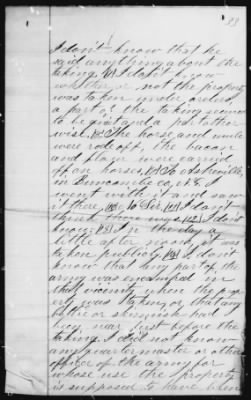 I don't know that he
said anything about the
taking. I don't know
whether or not the property
was taken under orders,
a part of the taking seemed
to be a part other
wise. The horse and mule
were rode off, the bacon
and flour were carried
off on horses. To Asheville,
in Buncombe Co, N.C. I
went with it and saw
it there. No Sir. I don't
think there was. I don't
know. In the day a
little after noon, it was
taken publicly. I don't
know that any part of the
army was encamped in
vicinity when the prop
erty was taken, or that any
battle or skirmish had
been near just before the
taking. I did not know
any quartermaster or other
officer of the army for
whose use the property
is supposed to have been